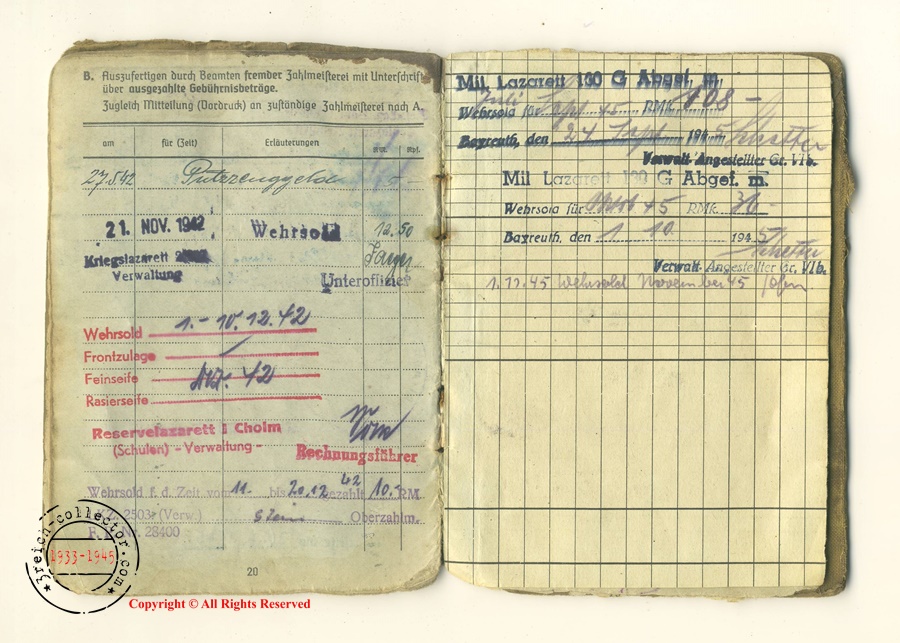 B. Auszufertigen durch Beamten fremder Zahlmeisterei mit Unterschrift
über ausgezahlte Gebührnisbeträge.
Zugleich Mitteilung (Vordruck) an zuständige Zahlmeisterei nach A.
am für (Zeit) Erläuterungen RM. Rpf.
27.5.42 Putzzeuggeld
21. NOV. 1942 Wehrsold 12.50
Kriegslazarett
Verwaltung
Unteroffizier
Wehrsold 1.- 10.12.42
Frontzulage
Feinseife
Rasierseife
Reservelazarett I Cholm
(Schulen) - Verwaltung -
Rechnungsführer
Wehrsold f. d. Zeit vom 11. bis 20.12.42 gezahlt 10.- RM
(Verw.) Oberzahlm.
28400
20
Mil. Lazarett 130 G Abgef. m.
Juli Sept. 45
Wehrsold für RMk. 108 -
Bayreuth, den 24 Sept. 1945
Verwalt. Angestellter Gr. VIb.
Mil Lazarett 130 G Abgef. m.
Wehrsold für Oktob 45 RMk. 36 -
Bayreuth, den 1 10. 1945
Verwalt. Angestellter Gr. VIb.
1.11.45 Wehrsold November 45
3reich-collector.com
1933-1945
Copyright © All Rights Reserved